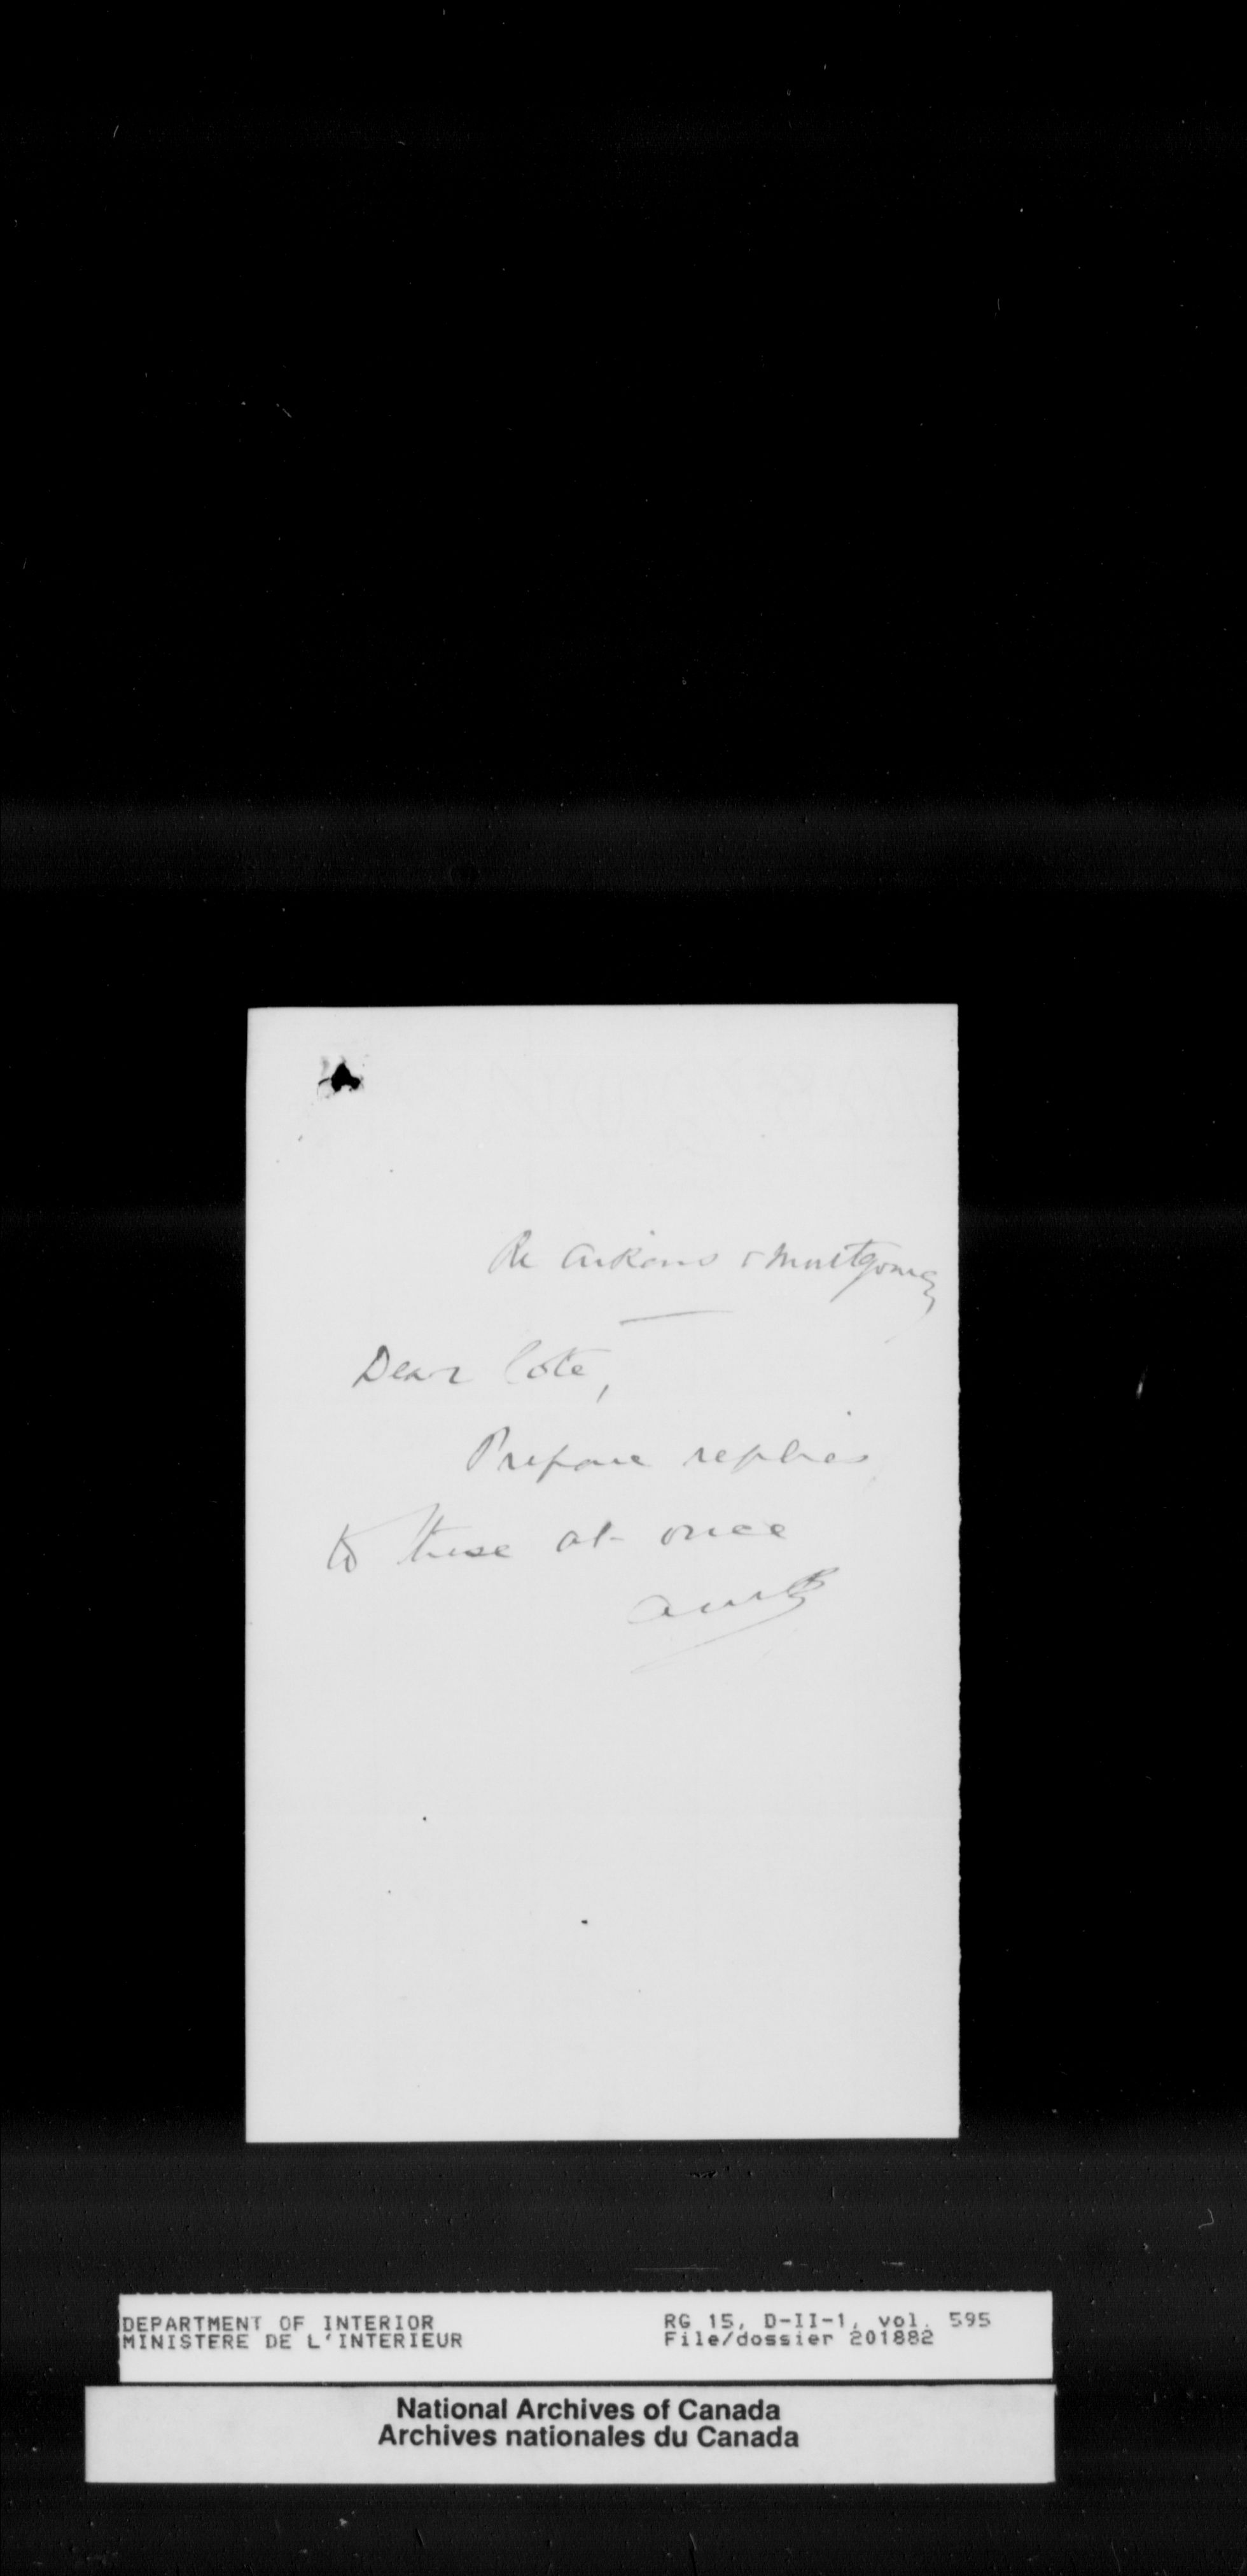 Re Aikens & Montgomery
Dear Cote,
Prepare replies
to these at once
DEPARTMENT OF INTERIOR
MINISTERE DE L'INTERIEUR
RG 15, D-II-1, vol. 595
File/dossier 201882
National Archives of Canada
Archives nationales du Canada